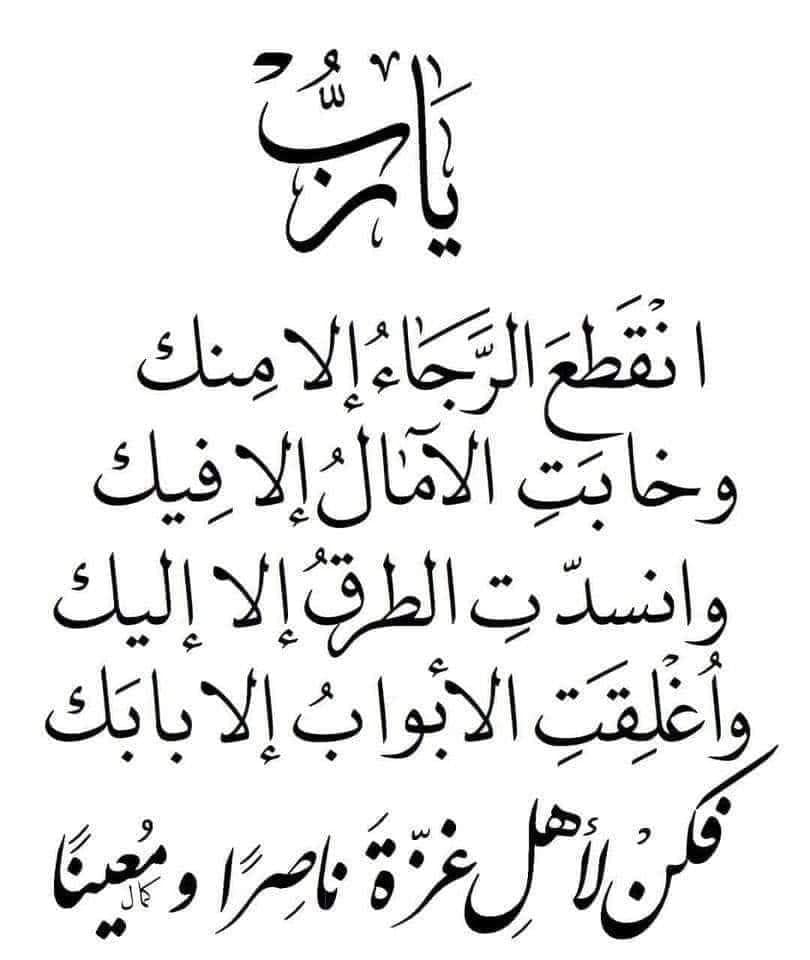 يَا رَبُّ
انْقَطَعَ الرَّجَاءُ إلا مِنك
وخابَتِ الآمَالُ إلا فِيك
وانسدّتِ الطرقُ إلا إليك
واُغْلِقَتِ الأبوابُ إلا بابَك
فكنْ لأهلِ غزّةَ ناصِرًا ومُعِينًا
كمال